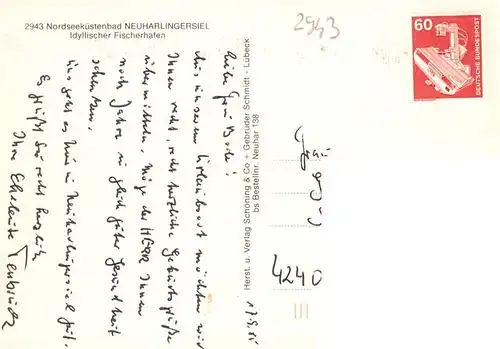 2943 Nordseeküstenbad NEUHARLINGERSIEL
Idyllischer Fischerhafen
2943
60
DEUTSCHE BUNDESPOST
17.8.85
Liebe Frau Bode!
Aus unserem Urlaubsort möchten wir
Ihnen recht, recht herzliche Geburtstagsgrüße
übermitteln. Möge der HERR Ihnen
noch Jahre in gleich guter Gesundheit
schenken.
Uns geht es hier in Neuharlingersiel gut.
Es grüßt Sie recht herzlich
Ihre Eheleute
Herst. u. Verlag Schöning & Co + Gebrüder Schmidt - Lübeck
bs Bestellnr. Neuhar 138
Frau
4240